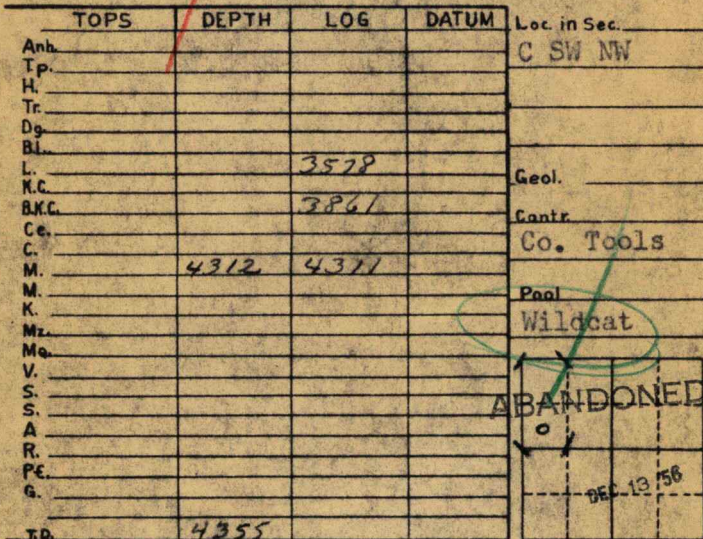 TOPS DEPTH LOG DATUM
Anh.
Tp.
H.
Tr.
Dg.
B.I.
L. 3578
K.C.
B.K.C. 3861
Ce.
C.
M. 4312 4311
M.
K.
Mz.
Mq.
V.
S.
S.
A
R.
P€.
G.
T.D. 4355
Loc. in Sec.
C SW NW
Geol.
Contr.
Co. Tools
Pool
Wildcat
ABANDONED
DEC 13 '56